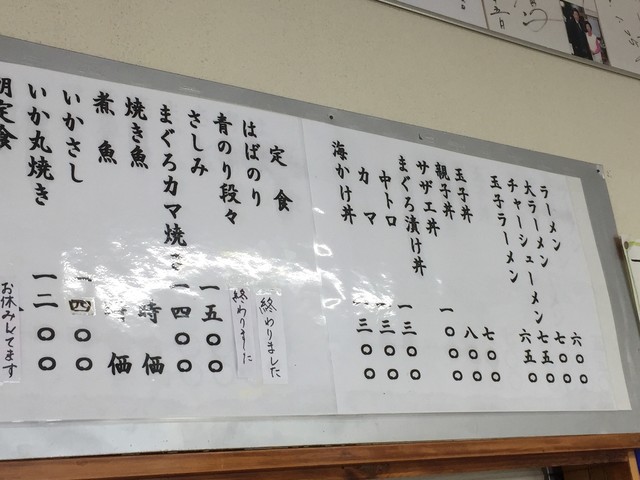 ラーメン 六〇〇
大ラーメン 七〇〇
チャーシューメン 七五〇
玉子ラーメン 六五〇
玉子丼 七〇〇
親子丼 八〇〇
サザエ丼 一〇〇〇
まぐろ漬け丼 一三〇〇
中トロ 一三〇〇
カマ 一三〇〇
海かけ丼
定食
はばのり 終わりました
青のり段々 終わりました
さしみ 一五〇〇
まぐろカマ焼き 一四〇〇
焼き魚 時価
煮魚 時価
いかさし 一四〇〇
いか丸焼き 一二〇〇
定食 お休みしてます